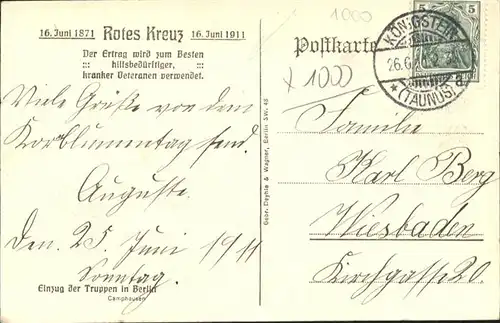 16. Juni 1871 Rotes Kreuz 16. Juni 1911
Der Ertrag wird zum Besten
::: hilfsbedürftiger, :::
kranker Veteranen verwendet.
Viele Grüße von dem
Kornblumentag send.
Auguste.
Den 25 Juni 1911
Sonntag.
Einzug der Truppen in Berlin
Camphausen
Gebr. Deyhle & Wagner, Berlin SW. 48
1000
Postkarte
x 1000
5 5
KÖNIGSTEIN
26.6.
* (TAUNUS) a
Familie
Karl Berg
Wiesbaden
Kirchgasse 20.